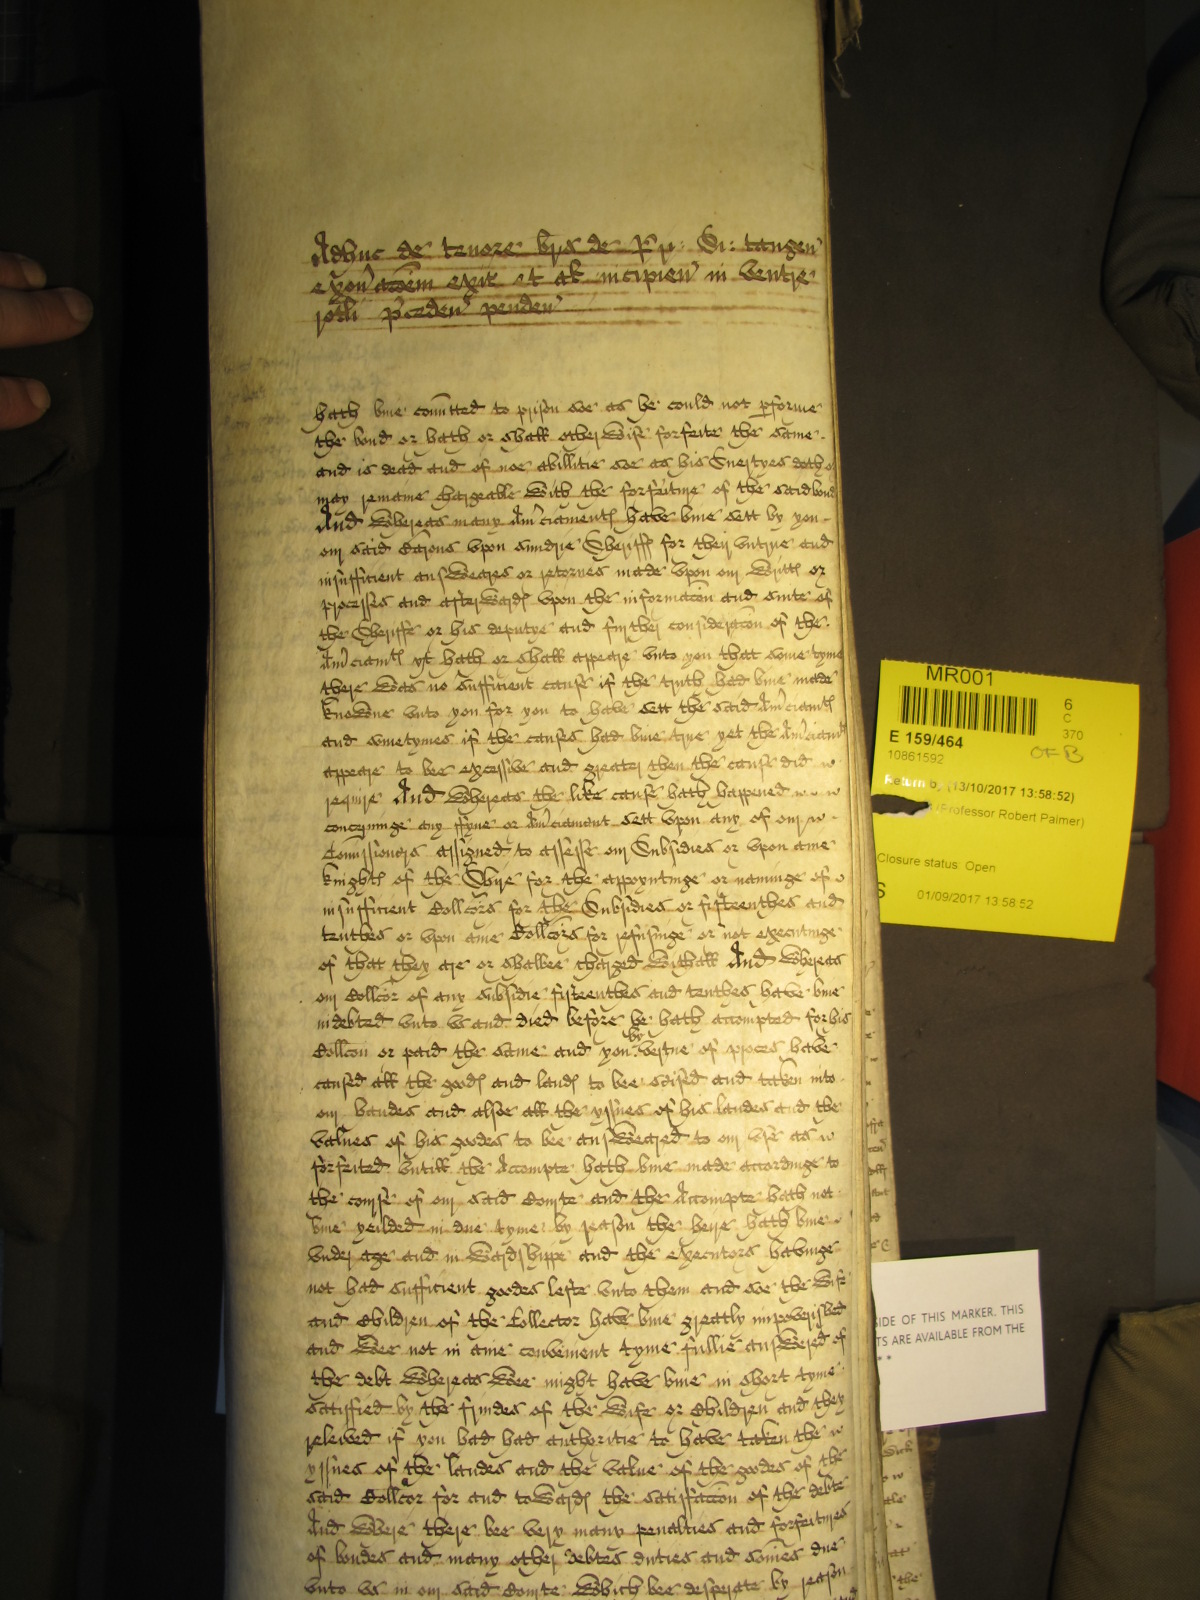 Adhuc de tenore bris de p'p: Di: tangen'
exon'acoem exit et al incipien' in ventre
rotli p'ceden' penden'
hath bine comitted to prison soe as he could not pforme
the bond or hath or shall otherwise forfeite the same
and is dead and of noe abillitie soe as his Suertyes doth o
may remaine chargeable with the forfeiture of the said bond
And whereas many Am'ciaments have bine sett by you
our said Barons upon sundrie Sheriffs for their untrue and
insufficient answeares or retornes made upon our Writts or
processes and afterwards upon the informacon and suite of
the Sheriffe or his deputye and further consideracon of the
Am'ciamts yt hath or shall appeare unto you that some tyme
there was no sufficient cause if the truth had bine made
knowne unto you for you to have sett the said Am'ciamts
and sometymes if the causes had bine true yet the Am'ciamts
appeare to bee excessive and greater then the cause did
require And whereas the like cause hath happened
concerninge any ffyne or Am'ciament sett upon any of our
Comissioners assigned to assesse our Subsidies or upon anie
knights of the Shire for the appoyntinge or naminge of
insufficient Collcors for the Subsidies or fifteenthes and
tenthes or upon anie Collcors for refusinge or not executinge
of that they are or shalbee charged withall And whereas
our Collcor of any subsidie fifteenthes and tenthes have bine
indebted unto us and died before he hath accompted for his
Collcon or paid the same and you by vertue of proces have
caused all the goods and lands to bee seised and taken into
our handes and alsoe all the yssues of his landes and the
values of his goodes to bee answeared to our use as
forfeited untill the Accompte hath bine made accordinge to
the course of our said Courte and the Accompte hath not
bine yeilded in due tyme by reason the heire hath bine
under age and in wardshippe and the executors havinge
not had sufficient goodes lefte unto them and soe the wife
and Children of the Collector have bine greatly impoverished
and wee not in anie convenient tyme fullie answered of
the debt whereas wee might have bine in short tyme
satisfied by the frindes of the wife or Children and they
releived if you had had authoritie to have taken the
yssues of the landes and the value of the goodes of the
said Collcor for and towards the satisfaccon of the debte
And where there bee very many penalties and forfeitures
of bondes and many other debtes duties and somes due
unto us in our said Courte which bee desperate by reason
MR001
6
C
370
E 159/464
OF B
10861592
Return by (13/10/2017 13:58:52)
(Professor Robert Palmer)
Closure status: Open
S
01/09/2017 13:58:52
SIDE OF THIS MARKER. THIS
TS ARE AVAILABLE FROM THE
**